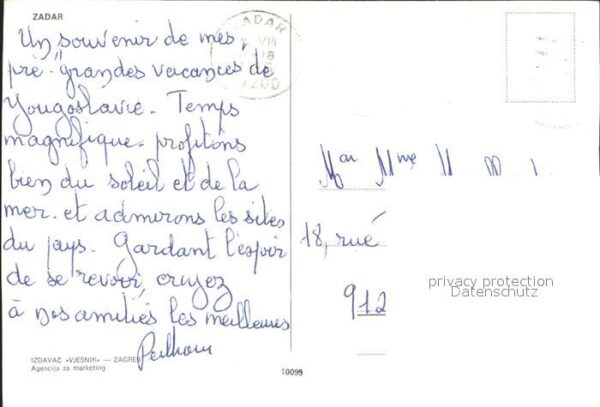 ZADAR
Un souvenir de mes,
pré-"grandes vacances de
Yougoslavie. Temps
magnifique. profitons
bien du soleil et de la
mer. et admirons les sites
du pays. Gardant l'espoir
de se revoir, croyez
à nos amitiés les meilleures
ZADAR
VII
18
Mme
18, rue
912
privacy protection
Datenschutz
IZDAVAČ «VJESNIK» — ZAGREB
Agencija za marketing
10099